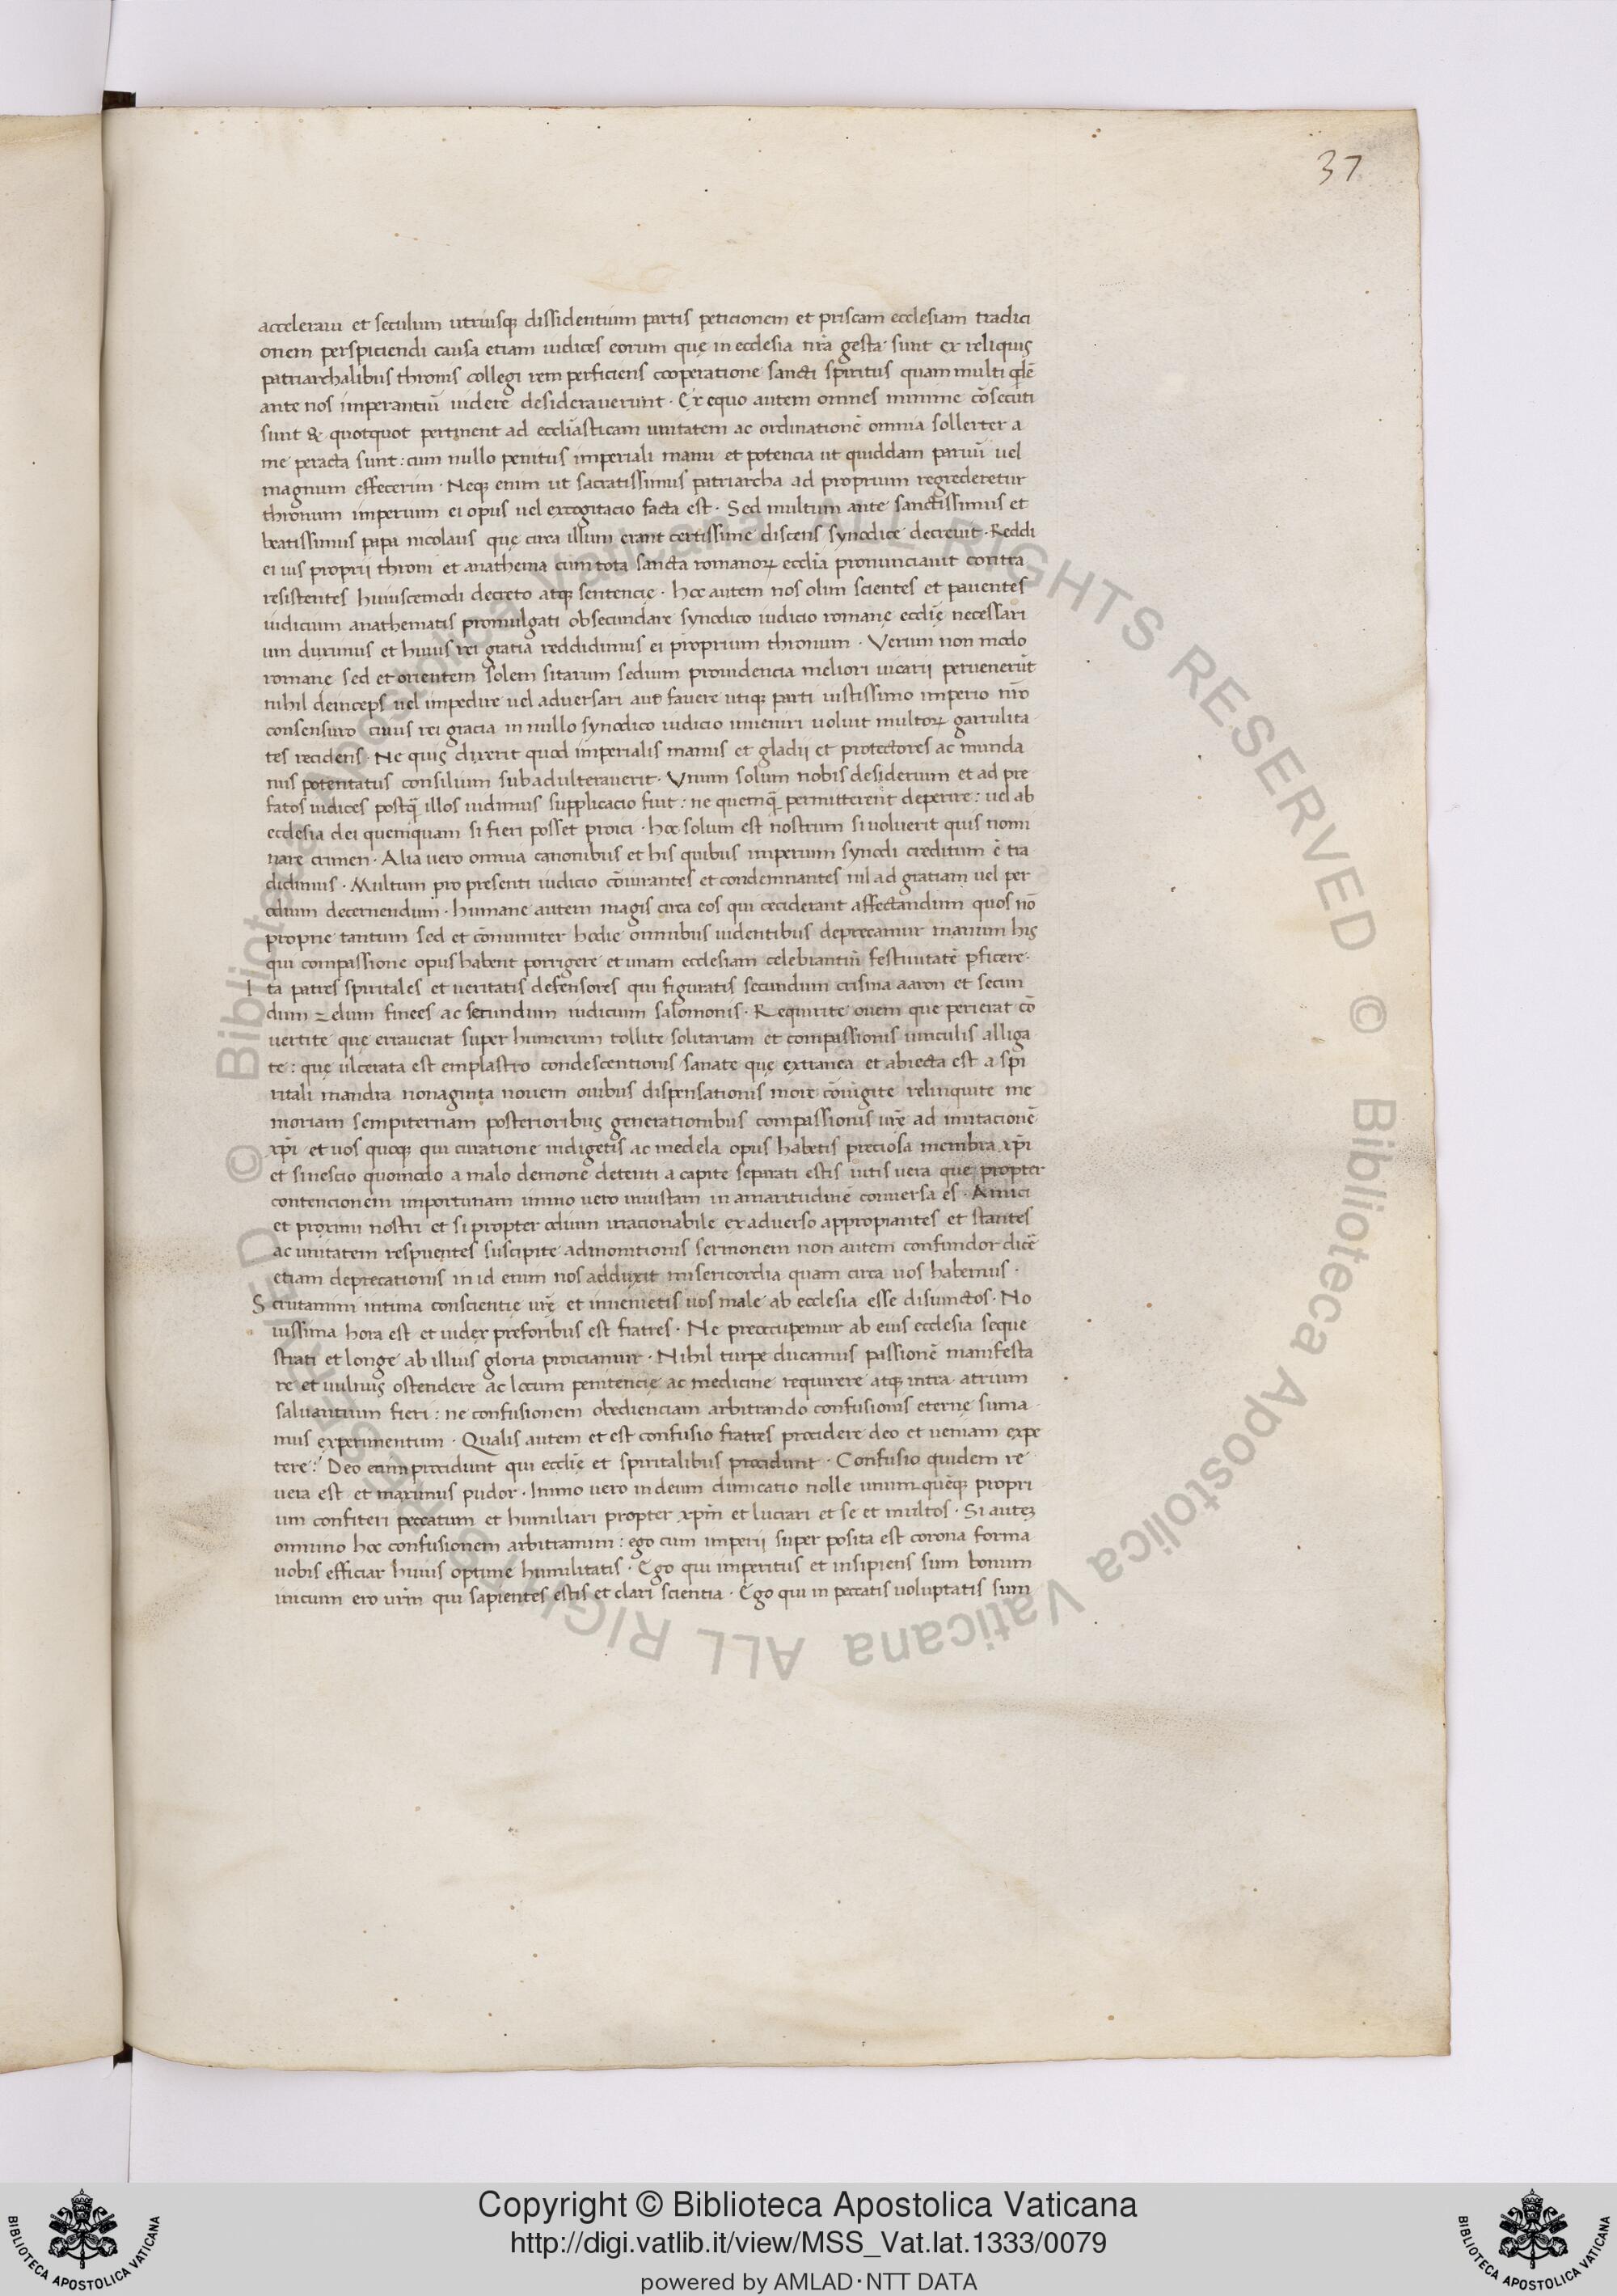 37
acceleraui et secutum utriusq; dissidentium partis peticionem et priscam ecclesiam tradici
onem perspiciendi causa etiam iudices eorum quę in ecclesia nr̄a gesta sunt ex reliquis
patriarchalibus thronis collegi rem perficiens cooperatione sancti spiritus quam multi
ante nos imperantiū uidere desiderauerunt · Ex equo autem omnes minime cōsecuti
sunt & quotquot pertinent ad eccl̄iasticam unitatem ac ordinationē omnia sollerter a
me peracta sunt : cum nullo penitus imperiali manu et potencia ut quiddam paruū uel
magnum effecerim · Neq; enim ut sacratissimus patriarcha ad proprium regrederetur
thronum imperium ei opus uel excogitacio facta est · Sed multum ante sanctissimus et
beatissimus papa nicolaus quę circa illum erant certissime discens synodice decreuit · Reddi
ei ius proprii throni et anathema cum tota sancta romanoꝝ eccl̄ia pronunciauit contra
resistentes huiuscemodi decreto atq; sentencię · hoc autem nos olim scientes et pauentes
iudicium anathematis promulgati obsecundare synodico iudicio romanę eccl̄ię necessari
um duximus et huius rei gratia reddidimus ei proprium thronum · Verum non modo
romanę sed et orientem solem sitarum sedium prouidencia meliori uicarii peruenerūt
nihil deinceps uel impedire uel aduersari aut fauere utiq; parti iustissimo imperio nr̄o
consensuro cuius rei gracia in nullo synodico iudicio inueniri uoluit multoꝝ garrulita
tes recidens · Ne quis dixerit quod imperialis manus et gladii et protectores ac munda
nus potentatus consilium subadulterauerit · Vnum solum nobis desiderium et ad pre
fatos iudices postq̄ illos uidimus supplicacio fuit : ne quemq̄ permitterent deperire : uel ab
ecclesia dei quemquam si fieri posset proici · hoc solum est nostrum si uoluerit quis nomi
nare crimen · Alia uero omnia canonibus et his quibus imperium synodi creditum ē tra
didimus · Multum pro presenti iudicio cōiurantes et condemnantes nil ad gratiam uel per
odium decernendum · humane autem magis circa eos qui ceciderant affectandum quos nō
proprie tantum sed et cōmuniter hodie omnibus uidentibus deprecamur manum his
qui compassione opus habent porrigere et unam ecclesiam celebrantiū festiuitatē ꝑficere ·
Ita patres spiritales et ueritatis defensores qui figuratis secundum crisma aaron et secun
dum zelum finees ac secundum iudicium salomonis · Requirite ouem que perierat cō
uertite que errauerat super humerum tollite solitariam et compassionis uinculis alliga
te : quę ulcerata est emplastro condescentionis sanate quę extranea et abiecta est a spi
ritali mandra nonaginta nouem ouibus dispensationis more cōiūgite relinquite me
moriam sempiternam posterioribus generationibus compassionis ur̄ę ad imitacionē
xp̄i et uos quoq; qui curatione indigetis ac medela opus habetis preciosa membra xp̄i
et si nescio quomodo a malo demone detenti a capite separati estis uitis uera que propter
contencionem importunam immo uero iniustam in amaritudinē conuersa es · Amici
et proximi nostri et si propter odium irracionabile ex aduerso appropiantes et stantes
ac unitatem respuentes suscipite admonitionis sermonem non autem confundor dicē
etiam deprecationis in id enim nos adduxit misericordia quam circa uos habemus ·
Scrutamini intima conscientie ur̄ę et inuenietis uos male ab ecclesia esse disiunctos · No
uissima hora est et iudex preforibus est fratres · Ne preoccupemur ab eius ecclesia seque
strati et longe ab illius gloria proiciamur · Nihil turpe ducamus passionē manifesta
re et uulnus ostendere ac locum penitencię ac medicine requirere atq; intra atrium
saluantium fieri : ne confusionem obedienciam arbitrando confusionis eternę suma
mus experimentum · Qualis autem et est confusio fratres procidere deo et ueniam expe
tere : Deo enim procidunt qui eccl̄ię et spiritalibus procidunt · Confusio quidem re
uera est et maximus pudor · Immo uero in deum dimicatio nolle unumquēq; propri
um confiteri peccatum et humiliari propter xp̄m et luctari et se et multos · Si autez
omnino hoc confusionem arbitramini : ego cum imperii super posita est corona forma
uobis efficiar huius optime humilitatis · Ego qui imperitus et insipiens sum bonum
inicium ero ur̄m qui sapientes estis et clari scientia · Ego qui in peccatis uoluptatis sum
© Biblioteca Apostolica Vaticana ALL RIGHTS RESERVED
Copyright © Biblioteca Apostolica Vaticana
http://digi.vatlib.it/view/MSS_Vat.lat.1333/0079
powered by AMLAD·NTT DATA
BIBLIOTECA APOSTOLICA VATICANA
BIBLIOTECA APOSTOLICA VATICANA